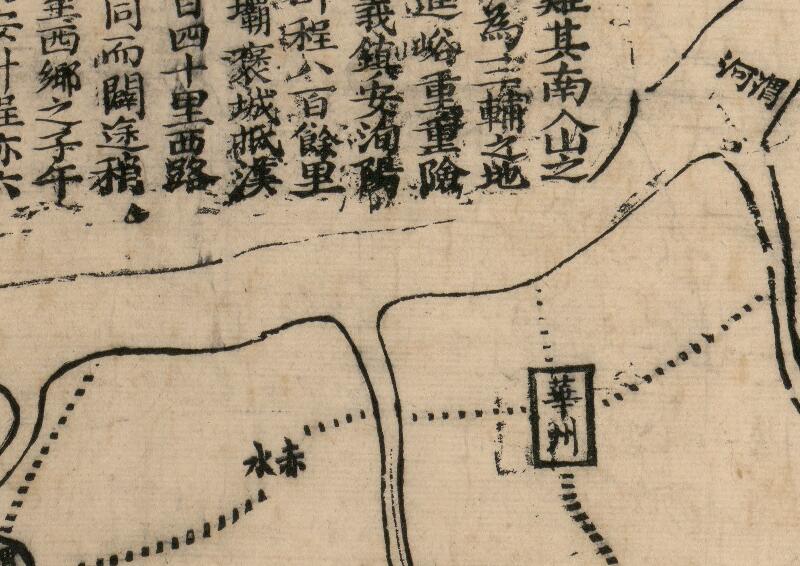 其南入山之
為三輔之地
峪重重險
義鎮安洵陽
程八百餘里
壩褒城抵漢
四十里西路
同而闢途稍
西鄉之子午
計程亦六
渭河
華州
赤水